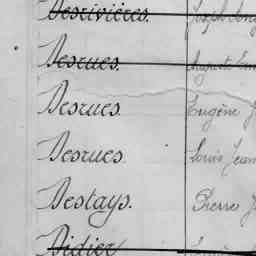 Desrivières. Joseph
Desrues. Auguste
Desrues. Eugène J
Desrues. Louis Jean
Destays. Pierre J
Didier